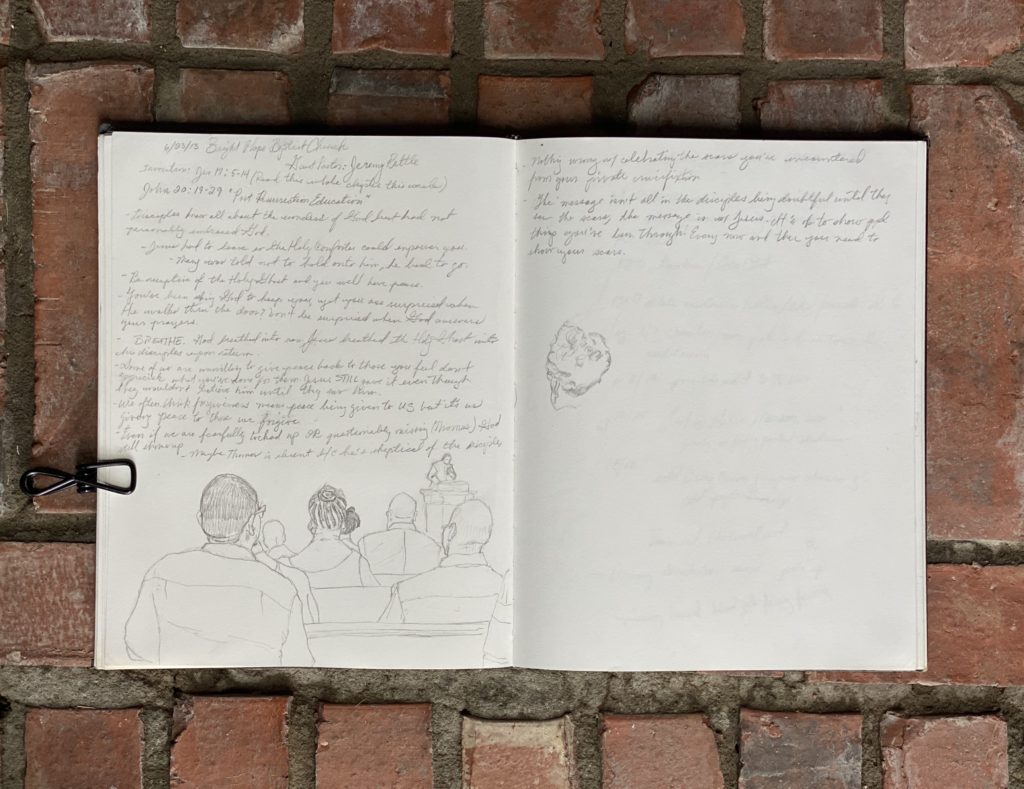 6/23/13 Bright Hope Baptist Church
Guest Pastor: Jeremy Battle
(Read this whole chapter this week)
John 20:19-29 "Post Resurrection Education"
- Disciples knew all about the of God but had not
personally embraced God.
- Jesus had to leave so the Holy Comforter could empower you.
- Mary was told not to hold onto him, he had to go.
- Be receptive of the Holy Ghost and you will have peace.
- You've been asking God to keep you, yet you are surprised when
He walks thru the door? Don't be surprised when God answers
your prayers.
- BREATHE. God breathed into man, Jesus breathed the Holy Ghost into
his disciples upon return.
- Some of us are unwilling to give peace back to those you feel don't
appreciate what you've done for them. Jesus STILL gave it even though
they wouldn't believe him until they saw him.
- We often think forgiveness means peace being given to US but it's us
giving peace to those we forgive.
- Even if we are fearfully locked up OR questionably missing (Thomas) God
still shows up. - Maybe Thomas is absent b/c he's skeptical of the disciples
- Nothing wrong w/ celebrating the scars you've encountered
from your private crucifixion
- The message isn't all in the disciples being doubtful until they
saw the scars, the message is in Jesus. It's ok to show ppl
things you've been through. Every now and then you need to
show your scars.